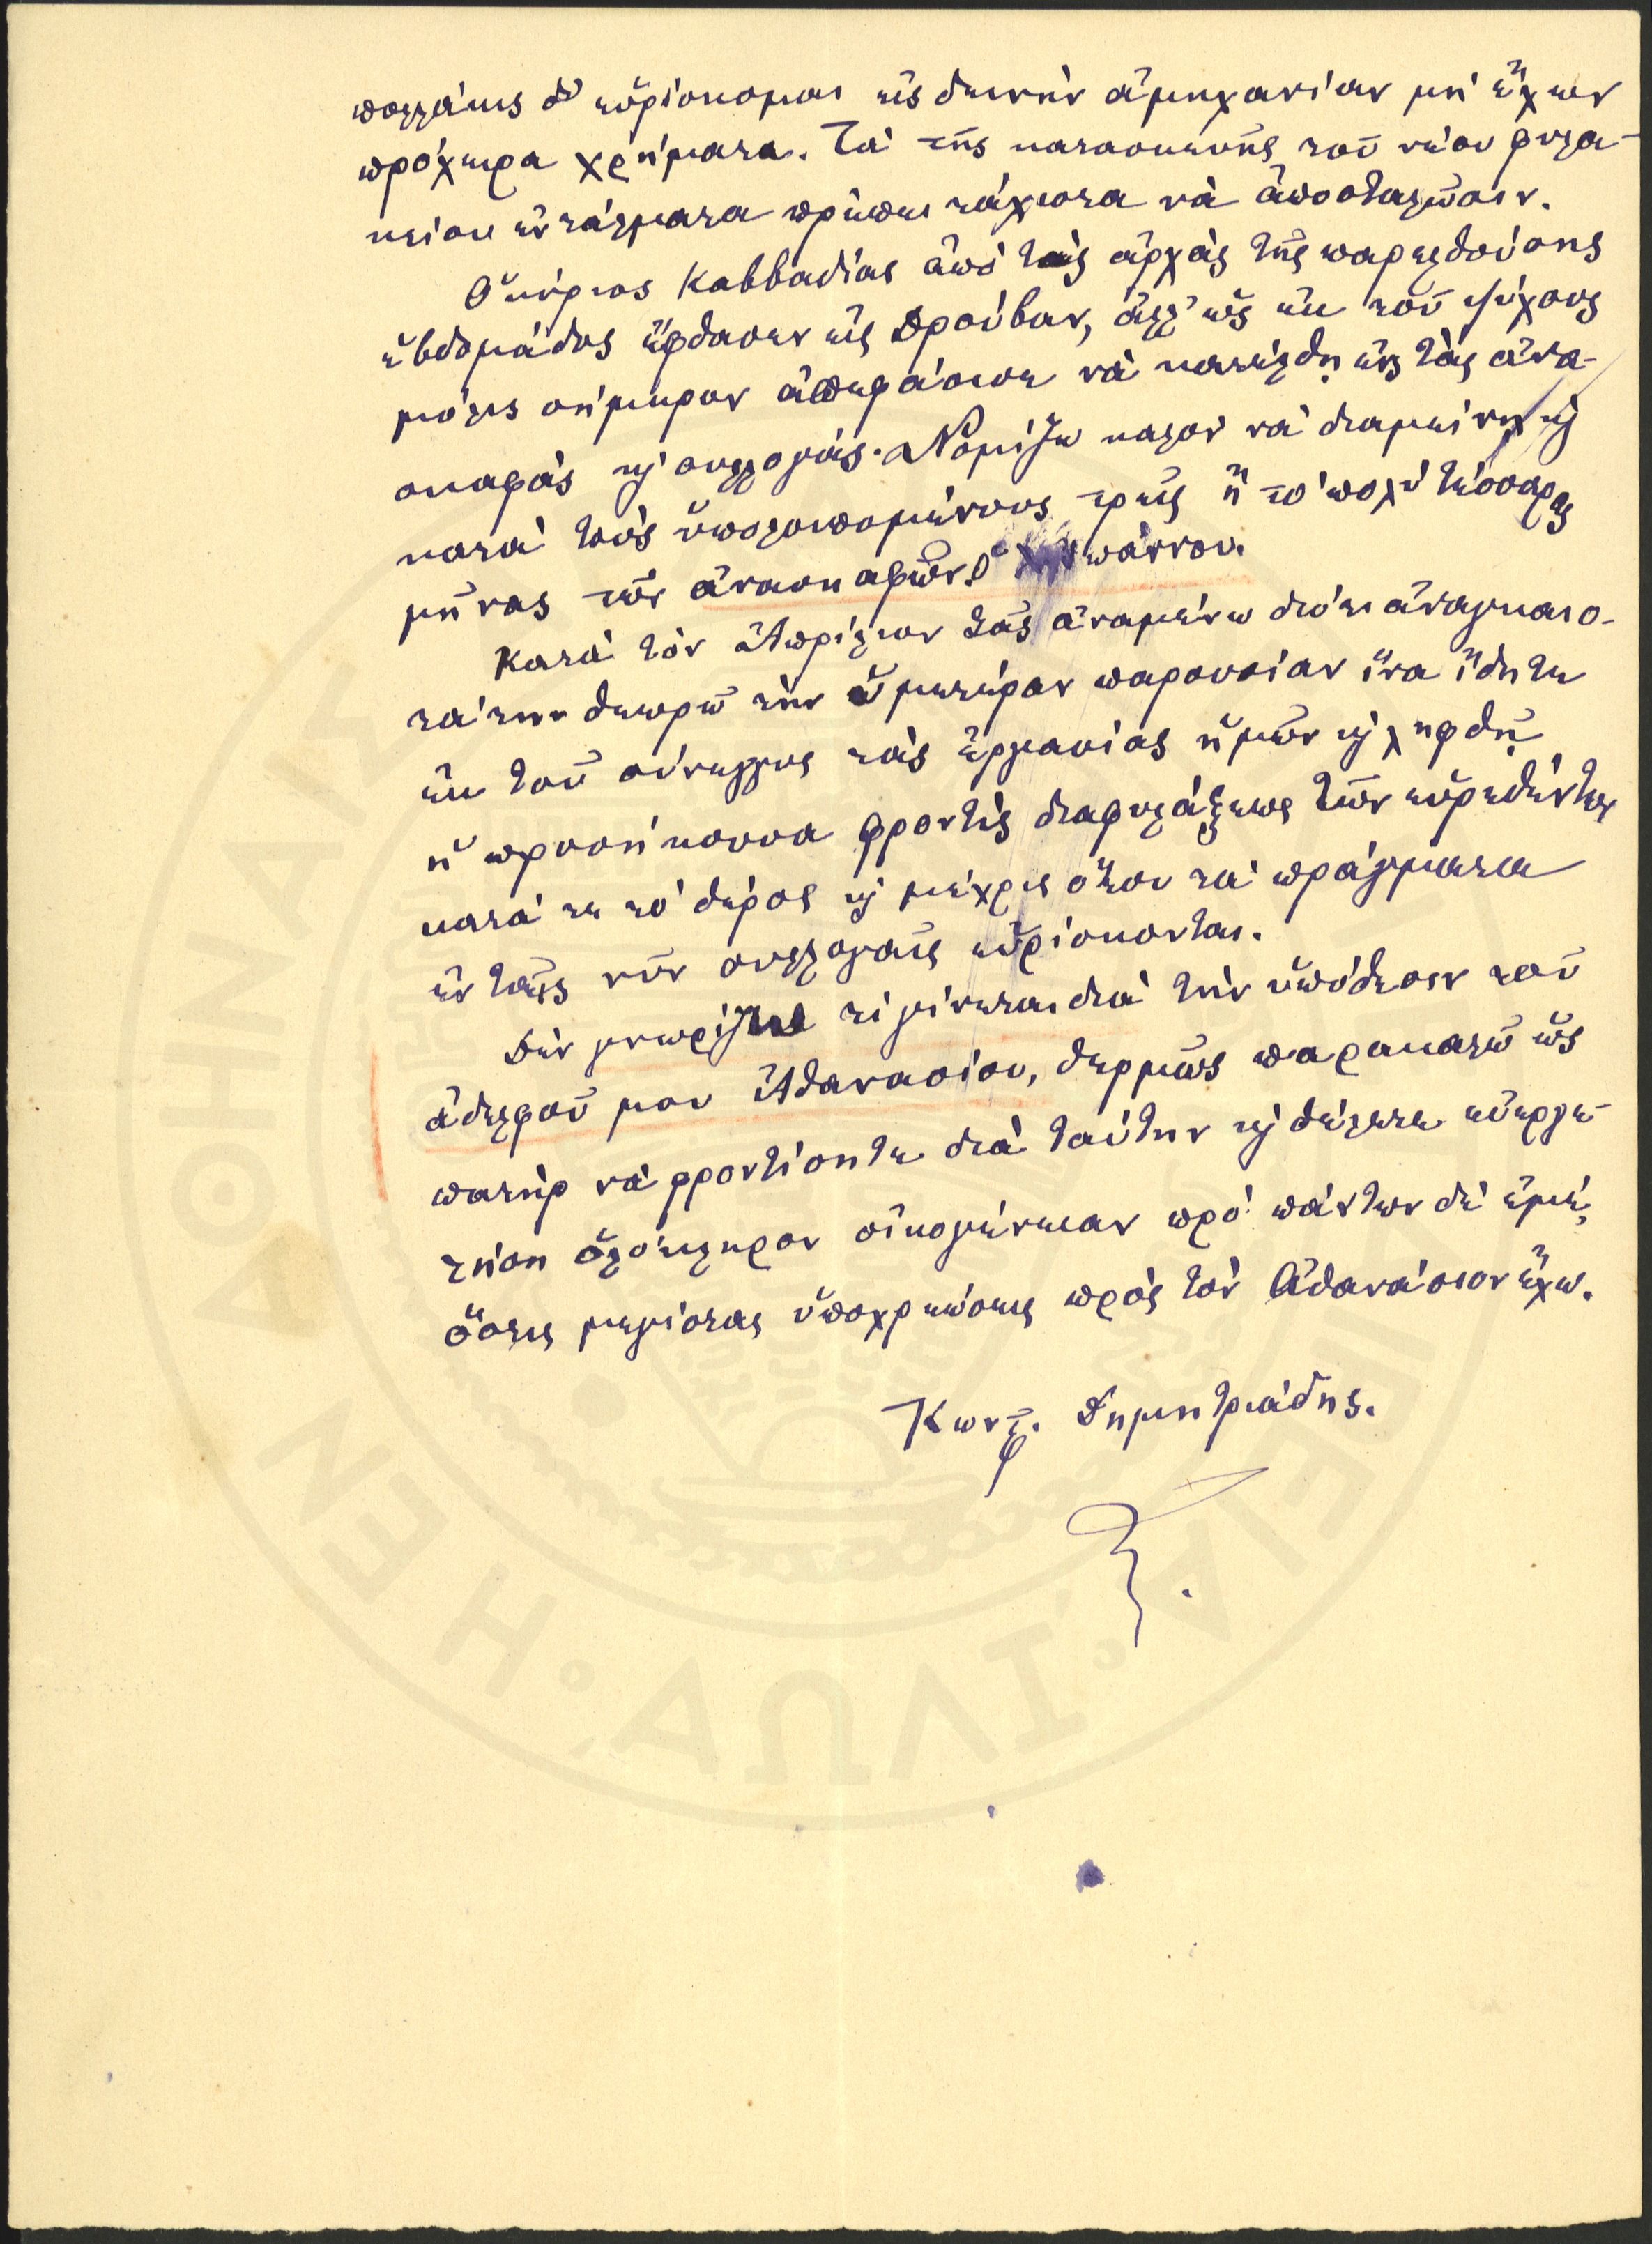 πολλάκις δ' εὑρίσκομαι εἰς δεινὴν ἀμηχανίαν μὴ ἔχων
πρόχειρα χρήματα. Τὰ τῆς κατασκευῆς τοῦ νέου φυλα-
κείου ἐντάλματα πρέπει τάχιστα νὰ ἀποσταλῶσιν.
Ὁ κύριος Καββαδίας ἀπὸ τὰς ἀρχὰς τῆς παρελθούσης
ἑβδομάδος ἔφθασεν εἰς Δρούβαν, ἀλλ' ὡς ἐκ τοῦ ψύχους
μόλις σήμερον ἀπεφάσισε νὰ κατέλθῃ εἰς τὰς ἀνα-
σκαφὰς κ συλλογάς. Νομίζω καλὸν νὰ διαμείνῃ κ
κατὰ τοὺς ὑπολοιπομένους τρεῖς ἢ τὸ πολὺ τέσσαρες
μῆνας τῶν ἀνασκαφῶν πάντου.
Κατὰ τὸν Ἀπρίλιον σᾶς ἀναμένω διότι ἀναγκαιο-
τάτην θεωρῶ τὴν ὑμετέραν παρουσίαν ἵνα ἴδητε
ἐκ τοῦ σύνεγγυς τὰς ἐργασίας ἡμῶν κ ληφθῇ
ἡ προσήκουσα φροντὶς διαφυλάξεως τῶν εὑρεθέντων
κατά τε τὸ θέρος κ μέχρις ὅτου τὰ πράγματα
ἐν ταῖς νῦν συλλογαῖς εὑρίσκονται.
Δὲν γνωρίζω τί γίνεται διὰ τὴν ὑπόθεσιν τοῦ
ἀδελφοῦ μου Ἀθανασίου, θερμῶς παρακαλῶ ὡς
πατὴρ νὰ φροντίσητε διὰ ταύτην κ θέλετε εὐεργε-
τήσῃ ὁλόκληρον οἰκογένειαν πρὸ πάντων δὲ ἐμέ,
ὅστις μεγίστας ὑποχρεώσεις πρὸς τὸν Ἀθανάσιον ἔχω.
Κωνς. Δημητριάδης.